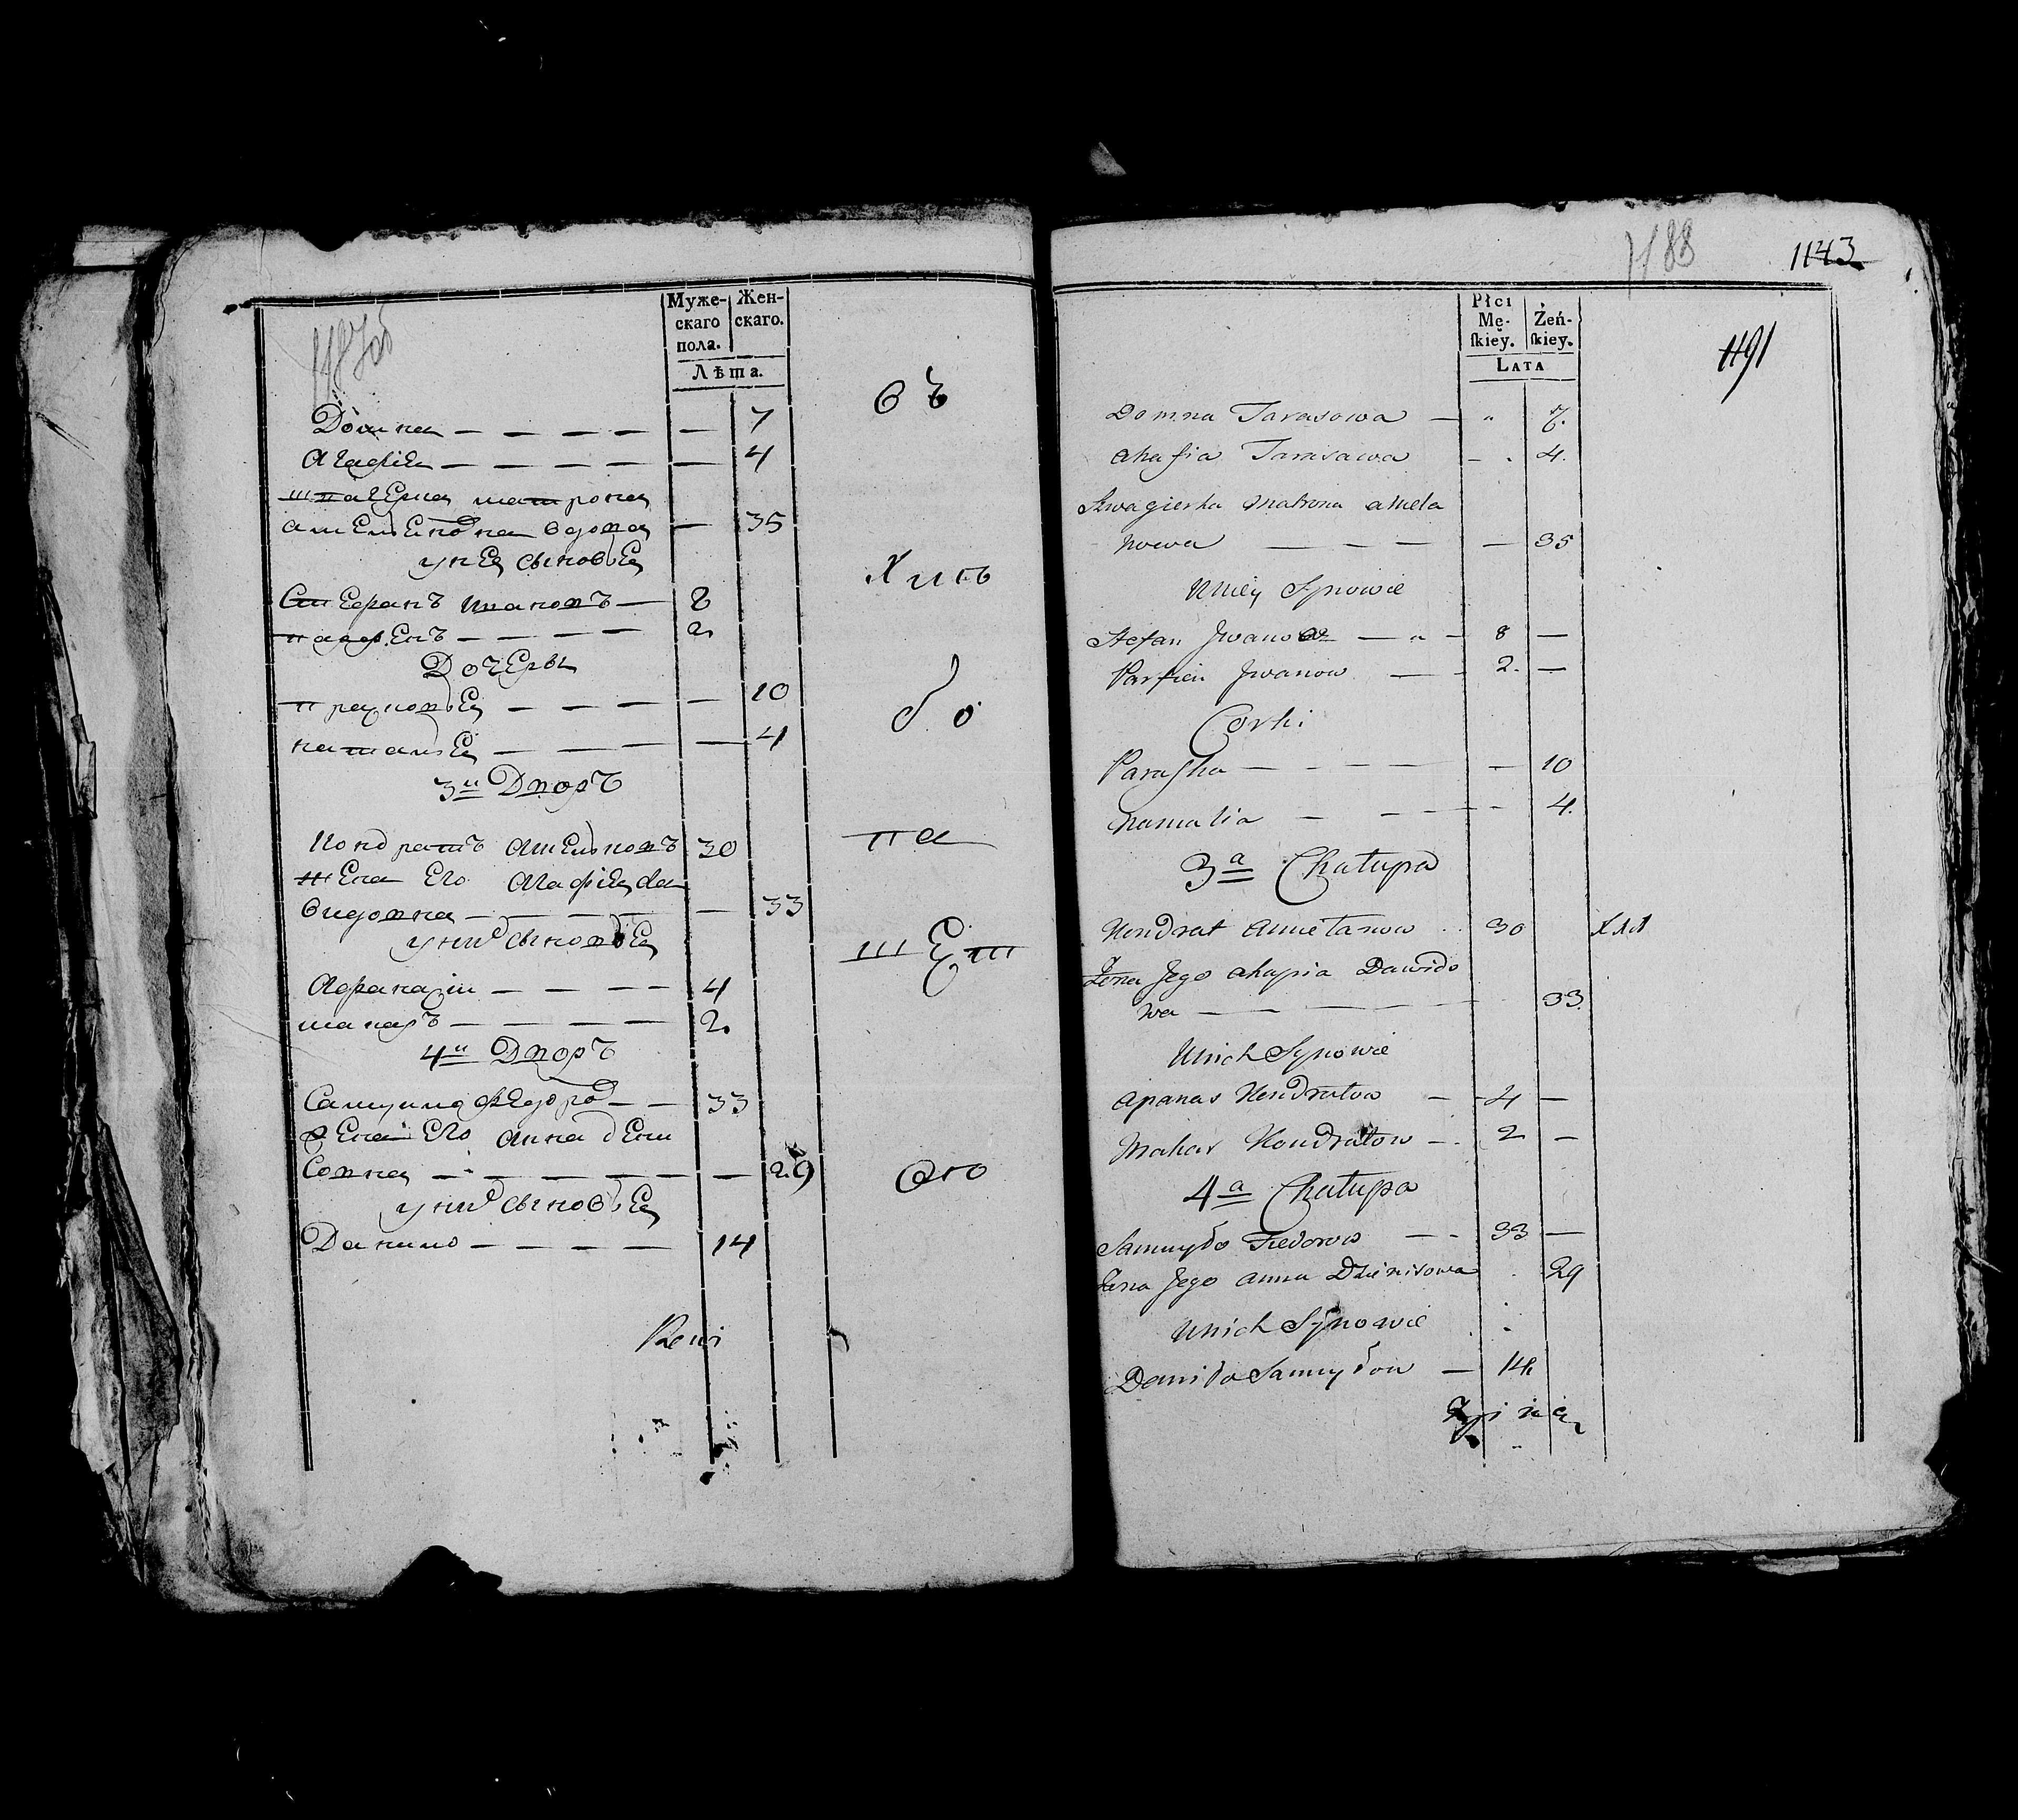 1187об
Муже- Жен-
скаго скаго.
пола.
Лѣта.
Домна — — — — — 7
Агафія — — — — — 4
швагерка матрона
амельяновна вдова — 35
у нея сыновья
Стефанъ ивановъ — 8
парфенъ — — — — 2
Дочеры
прасковья — — — — 10
наталья — — — — 4
3й Дворъ
Кондратъ Амельновъ 30
жена его Агафія да
видовна — — — — — 33
у них сыновья
Афанасіи — — — — 4
макаръ — — — — 2.
4й Дворъ
Самуила федоров — — 33
жена его анна дени
совна — — — — — — 29
у них сыновья
Данило — — — — — 14
Rewi
въ
па
1188
1143
1191
Płci
Mę- Żeń-
ſkiey. ſkiey.
LATA
Domna Tarasowa — " 7.
Ahafia Tarasawa — . 4.
Szwagierka Matrona Amela
nowa — — — — 35
U niey Synowie
Stefan Jwanow — " — 8 —
Parfien Jwanow — — 2. —
Corki
Paraſka — — — — — 10
Natalia — — — - 4.
3a Chałupa
Kondrat Amelanow . . 30
Żena Jego Ahapia Dawido
wa — — — 33.
U nich Synowie
Apanas Kondratow — - 4 —
Makar Kondratow — . 2 —
4a Chałupa
Samuyło Fiedorow — - 33 —
Żena Jego Anna Dzienisowa . 29
U nich Synowie
Daniło Samuyłow — 14